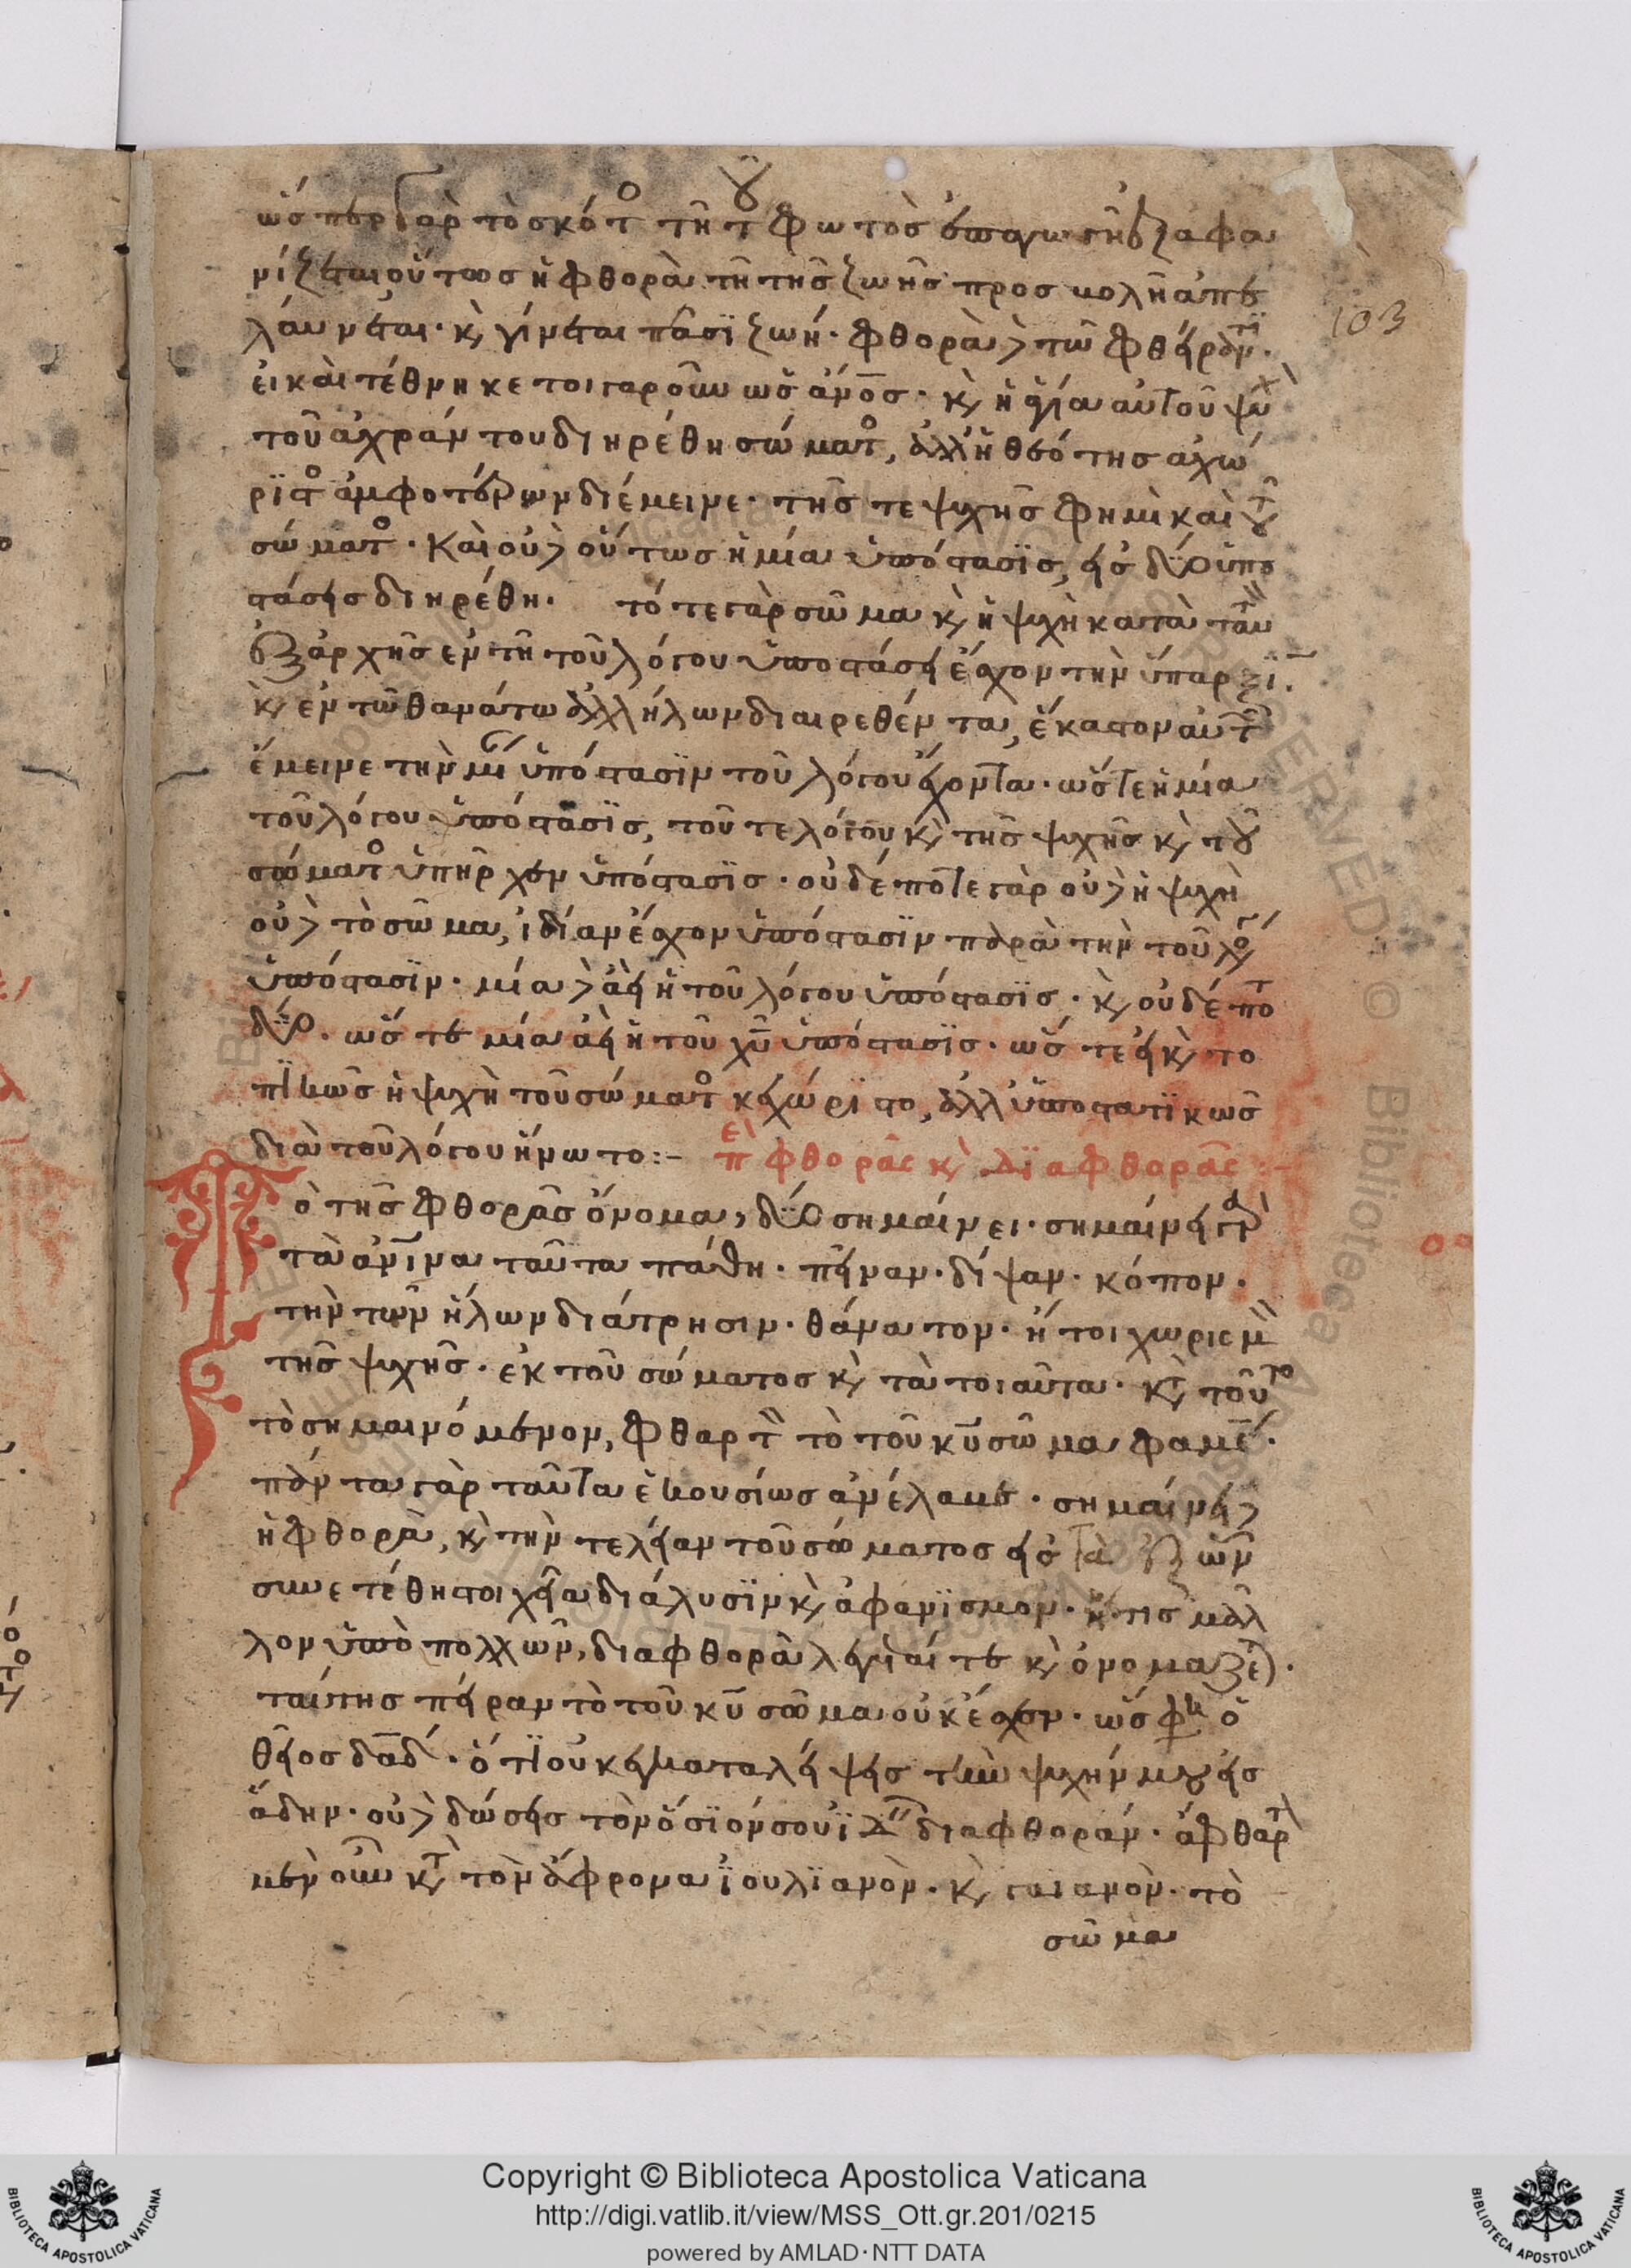 ὥσπερ γὰρ τὸ σκότος τῆ τοῦ φωτὸς ἐπαγωγῆ ἐξαφα
νίζεται οὕτως ἡ φθορὰ τῆ τῆς ζωῆς προσβολῆ ἀπε
λαύνεται· κ γίνεται πᾶσϊ ζωή· φθορὰ δὲ τῶ φθείροντι·
103
εἰ καὶ τέθνηκε τοιγαροῦν ὡς ἄνος· κ ἡ ἁγία αὐτοῦ ψυχὴ
τοῦ ἀχράντου διηρέθη σώματος, ἀλλ' ἡ θεότης ἀχώ
ρϊστος ἀμφοτέρων διέμεινε· τῆς τε ψυχῆς φημὶ καὶ τοῦ
σώματος· Καὶ οὐδὲ οὕτως ἡ μία ὑπόστασϊς, εἰς δύο ὑπο
στάσεις διηρέθη· τό τε γὰρ σῶμα κ ἡ ψυχὴ κατὰ ταυτὸν
ἐξ ἀρχῆς ἐν τῆ τοῦ λόγου ὑποστάσει ἔσχον τὴν ὕπαρξϊν·
κ ἐν τῶ θανάτω ἀλλήλων διαιρεθέντα, ἕκαστον αὐτῶν
ἔμεινε τὴν μίαν ὑπόστασϊν τοῦ λόγου ἔχοντα· ὥστε ἡ μία
τοῦ λόγου ὑπόστασϊς, τοῦ τε λόγου κ τῆς ψυχῆς κ τοῦ
σώματος ὑπῆρχεν ὑπόστασϊς· οὐδέποτε γὰρ οὐδὲ ἡ ψυχὴ
οὐδὲ τὸ σῶμα, ἰδίαν ἔσχον ὑπόστασϊν παρὰ τὴν τοῦ λόγου
ὑπόστασϊν· μία δὲ ἀεὶ ἡ τοῦ λόγου ὑπόστασϊς· κ οὐδέποτε
δύο· ὥστε μία ἀεὶ ἡ τοῦ χῦ ὑπόστασϊς· ὥστε εἰ κ το
πϊκῶς ἡ ψυχὴ τοῦ σώματος κεχώρϊστο, ἀλλ' ὑποστατϊκῶς
διὰ τοῦ λόγου ἥνωτο:- περὶ φθορᾶς κ δϊαφθορᾶς:-
Τὸ τῆς φθορᾶς ὄνομα, δύο σημαίνει· σημαίνει γὰρ
τὰ ἀνϊνα ταῦτα πάθη· πεῖναν· δίψαν· κόπον·
τὴν τῶν ἥλων διάτρησιν· θάνατον· ἤτοι χωρισμὸν
τῆς ψυχῆς· ἐκ τοῦ σώματος κ τὰ τοιαῦτα· κατὰ τοῦτο
τὸ σημαινόμενον, φθαρτὸν τὸ τοῦ κῦ σῶμα φαμέν·
πάντα γὰρ ταῦτα ἑκουσίως ἀνέλαβε· σημαίνει δὲ
ἡ φθορὰ, κ τὴν τελείαν τοῦ σώματος εἰς τὰ ἐξ ὧν
συνετέθη στοιχεῖα διάλυσϊν κ ἀφανϊσμόν· ἥτις μᾶλ
λον ὑπὸ πολλῶν, διαφθορὰ λέγεταί τε κ ὀνομάζεται·
ταύτης πεῖραν τὸ τοῦ κῦ σῶμα οὐκ ἔσχεν· ὥς φησιν ὁ
θεῖος δᾶδ· ὅτϊ οὐκ ἐγκαταλείψεις τὴν ψυχήν μου εἰς
ἅδην· οὐδὲ δώσεις τὸν ὅσϊόν σου ἰδεῖν διαφθοράν· ἄφθαρτον
μὲν οὖν κατὰ τὸν ἄφρονα ἰουλϊανὸν· κ γαιανὸν· τὸ
σῶμα
Copyright © Biblioteca Apostolica Vaticana
http://digi.vatlib.it/view/MSS_Ott.gr.201/0215
powered by AMLAD·NTT DATA